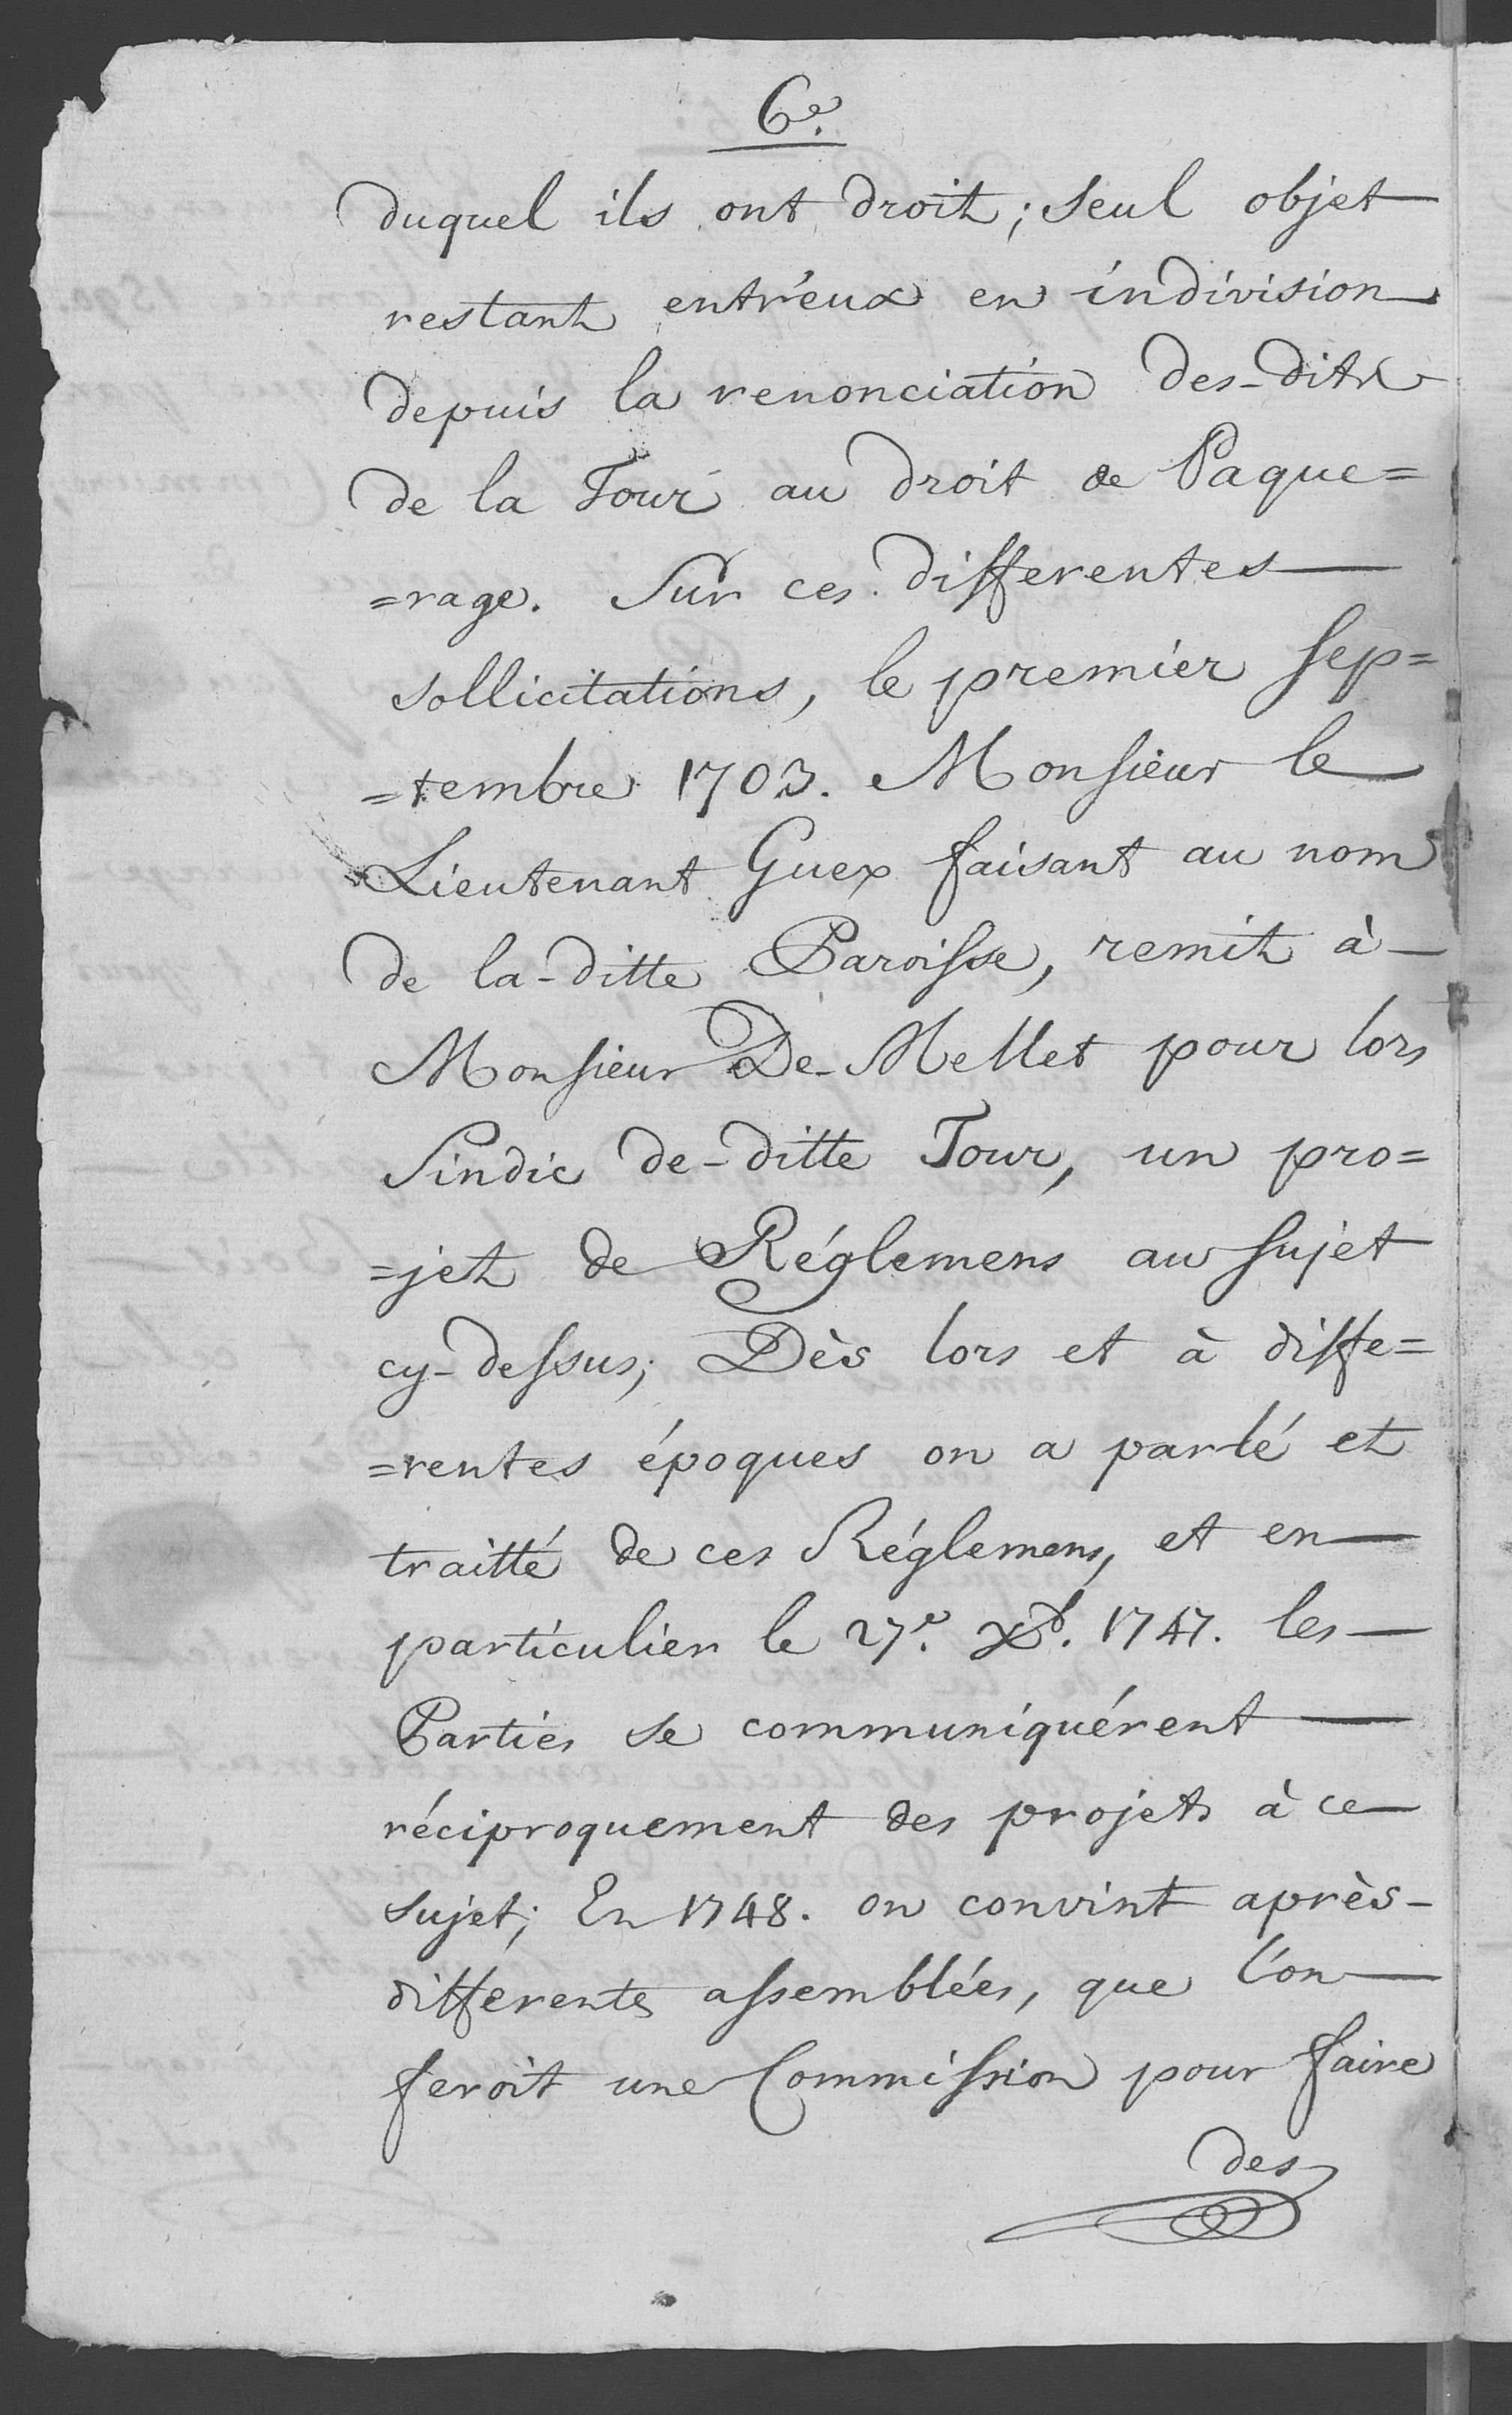 6e.
duquel ils ont droit; seul objet
restant entr'eux en indivision
depuis la renonciation des-dits
de la Tour au droit de Paque=
=rage. Sur ces differentes
sollicitations, le premier sep=
=tembre 1703. Monsieur le
Lieutenant Guex faisant au nom
de la-ditte Paroisse, remit à
Monsieur De-Mellet pour lors
Sindic de-ditte Tour, un pro=
=jet de Réglemens au sujet
cy-dessus; Dès lors et à diffe=
=rentes époques on a parlé et
traitté de ces Réglemens, et en
particulier le 27e. Xb. 1747. les
Parties se communiquérent
réciproquement des projets à ce
sujet; En 1748. on convint après
differentes assemblées, que l'on
feroit une Commission pour faire
des